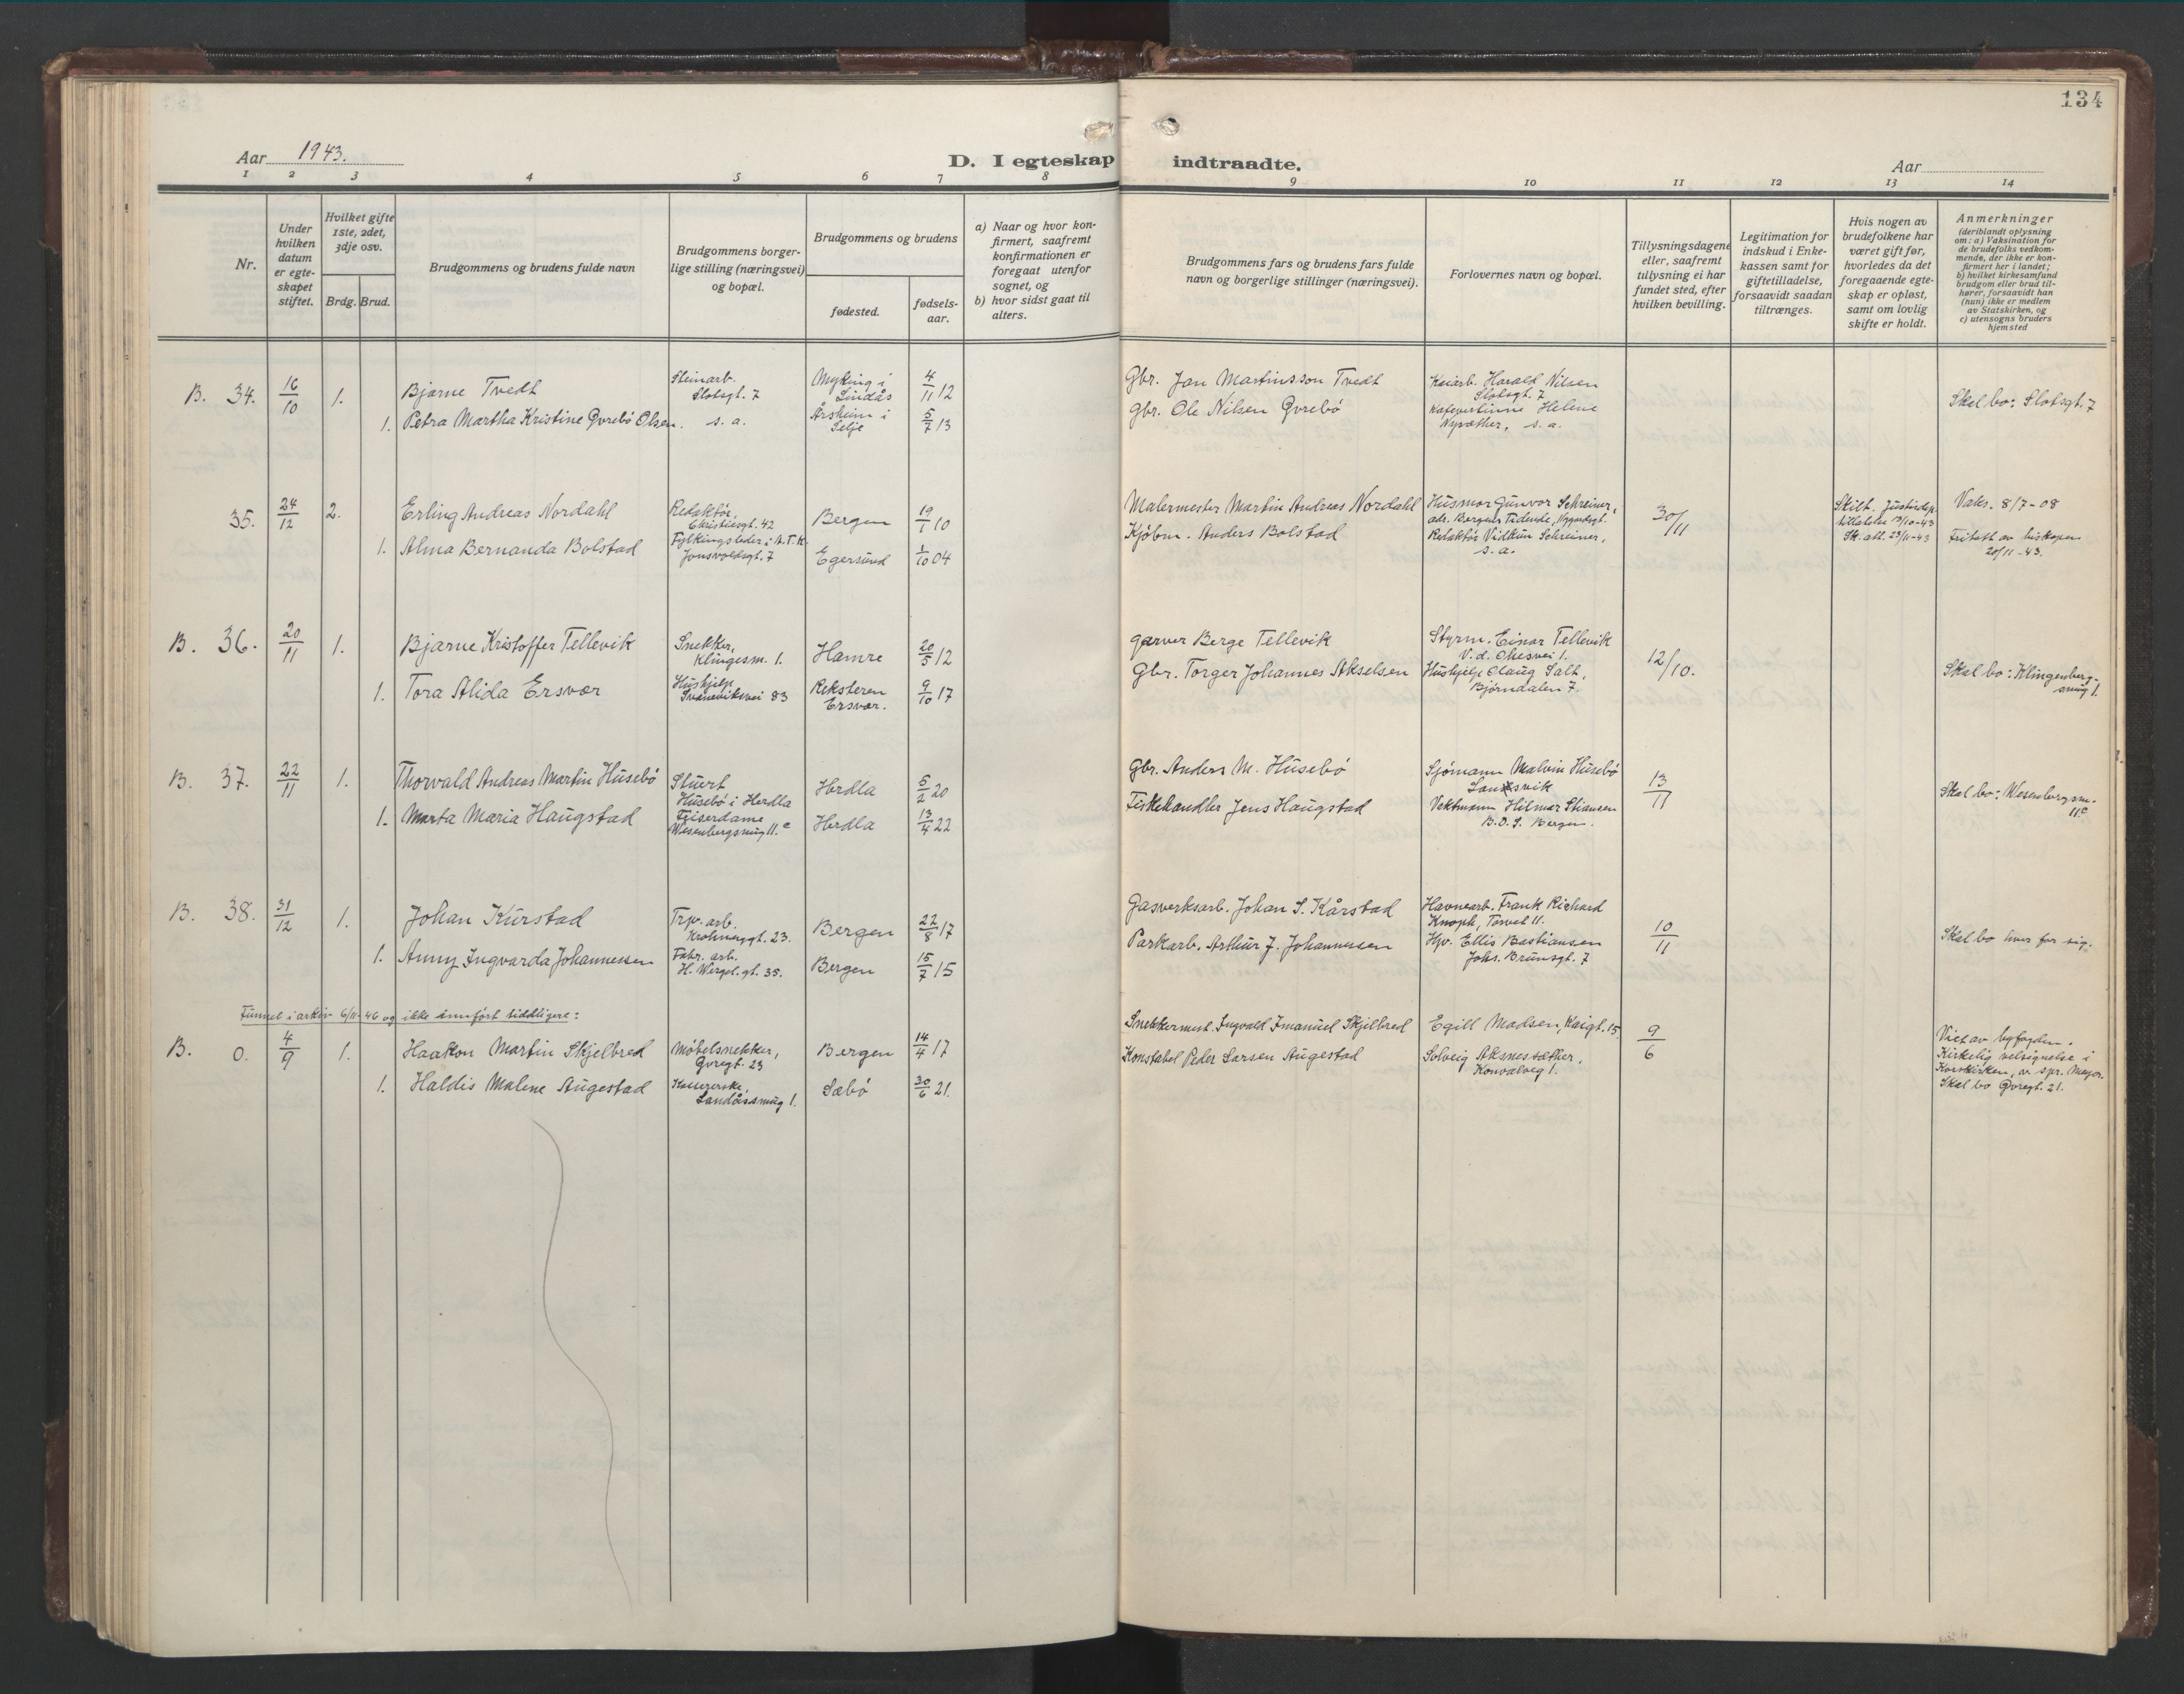 134
Aar 1943.
D. I egteskap indtraadte.
Aar
1 2 3 4 5 6 7 8 9 10 11 12 13 14
Nr.
Under hvilken datum er egte- skapet stiftet.
Hvilket gifte 1ste, 2det, 3dje osv.
Brdg. Brud.
Brudgommens og brudens fulde navn
Brudgommens borger- lige stilling (næringsvei) og bopæl.
Brudgommens og brudens
fødested.
fødsels- aar.
a) Naar og hvor kon- firmert, saafremt konfirmationen er foregaat utenfor sognet, og
b) hvor sidst gaat til alters.
Brudgommens fars og brudens fars fulde navn og borgerlige stillinger (næringsvei).
Forlovernes navn og bopæl.
Tillysningsdagene eller, saafremt tillysning ei har fundet sted, efter hvilken bevilling.
Legitimation for indskud i Enke- kassen samt for giftetilladelse, forsaavidt saadan tiltrænges.
Hvis nogen av brudefolkene har været gift før, hvorledes da det foregaaende egte- skap er opløst, samt om lovlig skifte er holdt.
Anmerkninger (deriblandt oplysning om: a) Vaksination for de brudefolks vedkom- mende, der ikke er kon- firmert her i landet; b) hvilket kirkesamfund brudgom eller brud til- hører, forsaavidt han (hun) ikke er medlem av Statskirken, og c) utensogns bruders hjemsted
B. 34. 16/10 1. Bjarne Tvedt Steinarb. Slotsgt. 7 Myking i Lindås 4/11 12 Gbr. Jan Martinsson Tvedt Kaiarb. Harald Nilsen Slotsgt. 7 Skal bo: Slotsgt. 7
1. Petra Martha Kristine Gvrebö Olsen. s. a. Årsheim i Selje 5/7 13 Gbr. Ole Nilsen Gvrebö Kafevertinne Helene s. a.
35. 24/12 2. Erling Andreas Nordahl Redaktör, Christiesgt. 42 Bergen 19/1 10 Malermester Martin Andreas Nordahl Husmor Gunvor Schreiner, adr. Bergens Tidende, Nygårdsgt. 30/11 Skilt. Justisdep. tillatelse 13/10-43 Sk. att. 23/11-43 Vaks. 8/7-08
1. Alma Bernanda Bolstad Fylkingsleder i A.T.K. Jonsvoldsgt. 7 Egersund 1/10 04 Kjöbm. Anders Bolstad Redaktör Vidkun Schreiner, s. a. Fritatt av biskopen 20/11-43.
B. 36. 20/11 1. Bjarne Kristoffer Tellevik Snekker, Klingesm. 1. Hamre 20/5 12 garver Berge Tellevik Styrm. Einar Tellevik V. d. Ohesvei 1. 12/10. Skal bo: Klingenberg- smug 1.
1. Tora Alida Ersvær Hushjelp Svaneviksvei 83 Reksteren Ersvær. 9/10 17 Gbr. Torger Johannes Akselsen Hushjelp Olaug Salt, Bjørndalen 7.
B. 37. 22/11 1. Thorvald Andreas Martin Húsebö Stuert Húsebö i Herdla Herdla 5/2 20 Gbr. Anders M. Húsebö Sjömann Malvin Húsebö 13/11 Skal bo: Wesenbergsm. 11c
1. Marta Maria Haugstad Friserdame Wesenbergsmug 11.c Herdla 13/4 22 Fiskehandler Jens Haugstad Vaktmann Hilmar Stiansen B.D.S. Bergen.
B. 38. 31/12 1. Johan Kårstad Trp. arb. Krohnengt. 23. Bergen 22/8 17 Gasverksarb. Johan S. Kårstad Havnearb. Frank Richard Knoph, Torvet 11. 10/11 Skal bo hver for sig.
1. Anny Ingvarda Johannessen Fabr. arb. H. Wergel. gt. 35. Bergen 15/7 15 Parkarb. Arthur J. Johannesen Hpr. Ellis Bastiansen Johs. Brunsgt. 7
Funnet i arkiv 6/11-46 og ikke innfört tiddligere:
B. 0. 4/9 1. Haakon Martin Skjelbred Möbelsnekker, Gvregt. 23 Bergen 14/4 17 Snekkermest. Ingvald Imanuel Skjelbred Egill Madsen, Kaigt. 15 9/6 Viet av byfogden. Kirkelig velsignelse i Korskirken, av spr. Meyer. Skal bo Qvregt. 21.
1. Haldis Malene Augestad Kassererske, Landåssmug 1. Sæbö 30/6 21. Konstabel Peder Larsen Augestad Solveig Aksnessæther, Konvalveg 1.